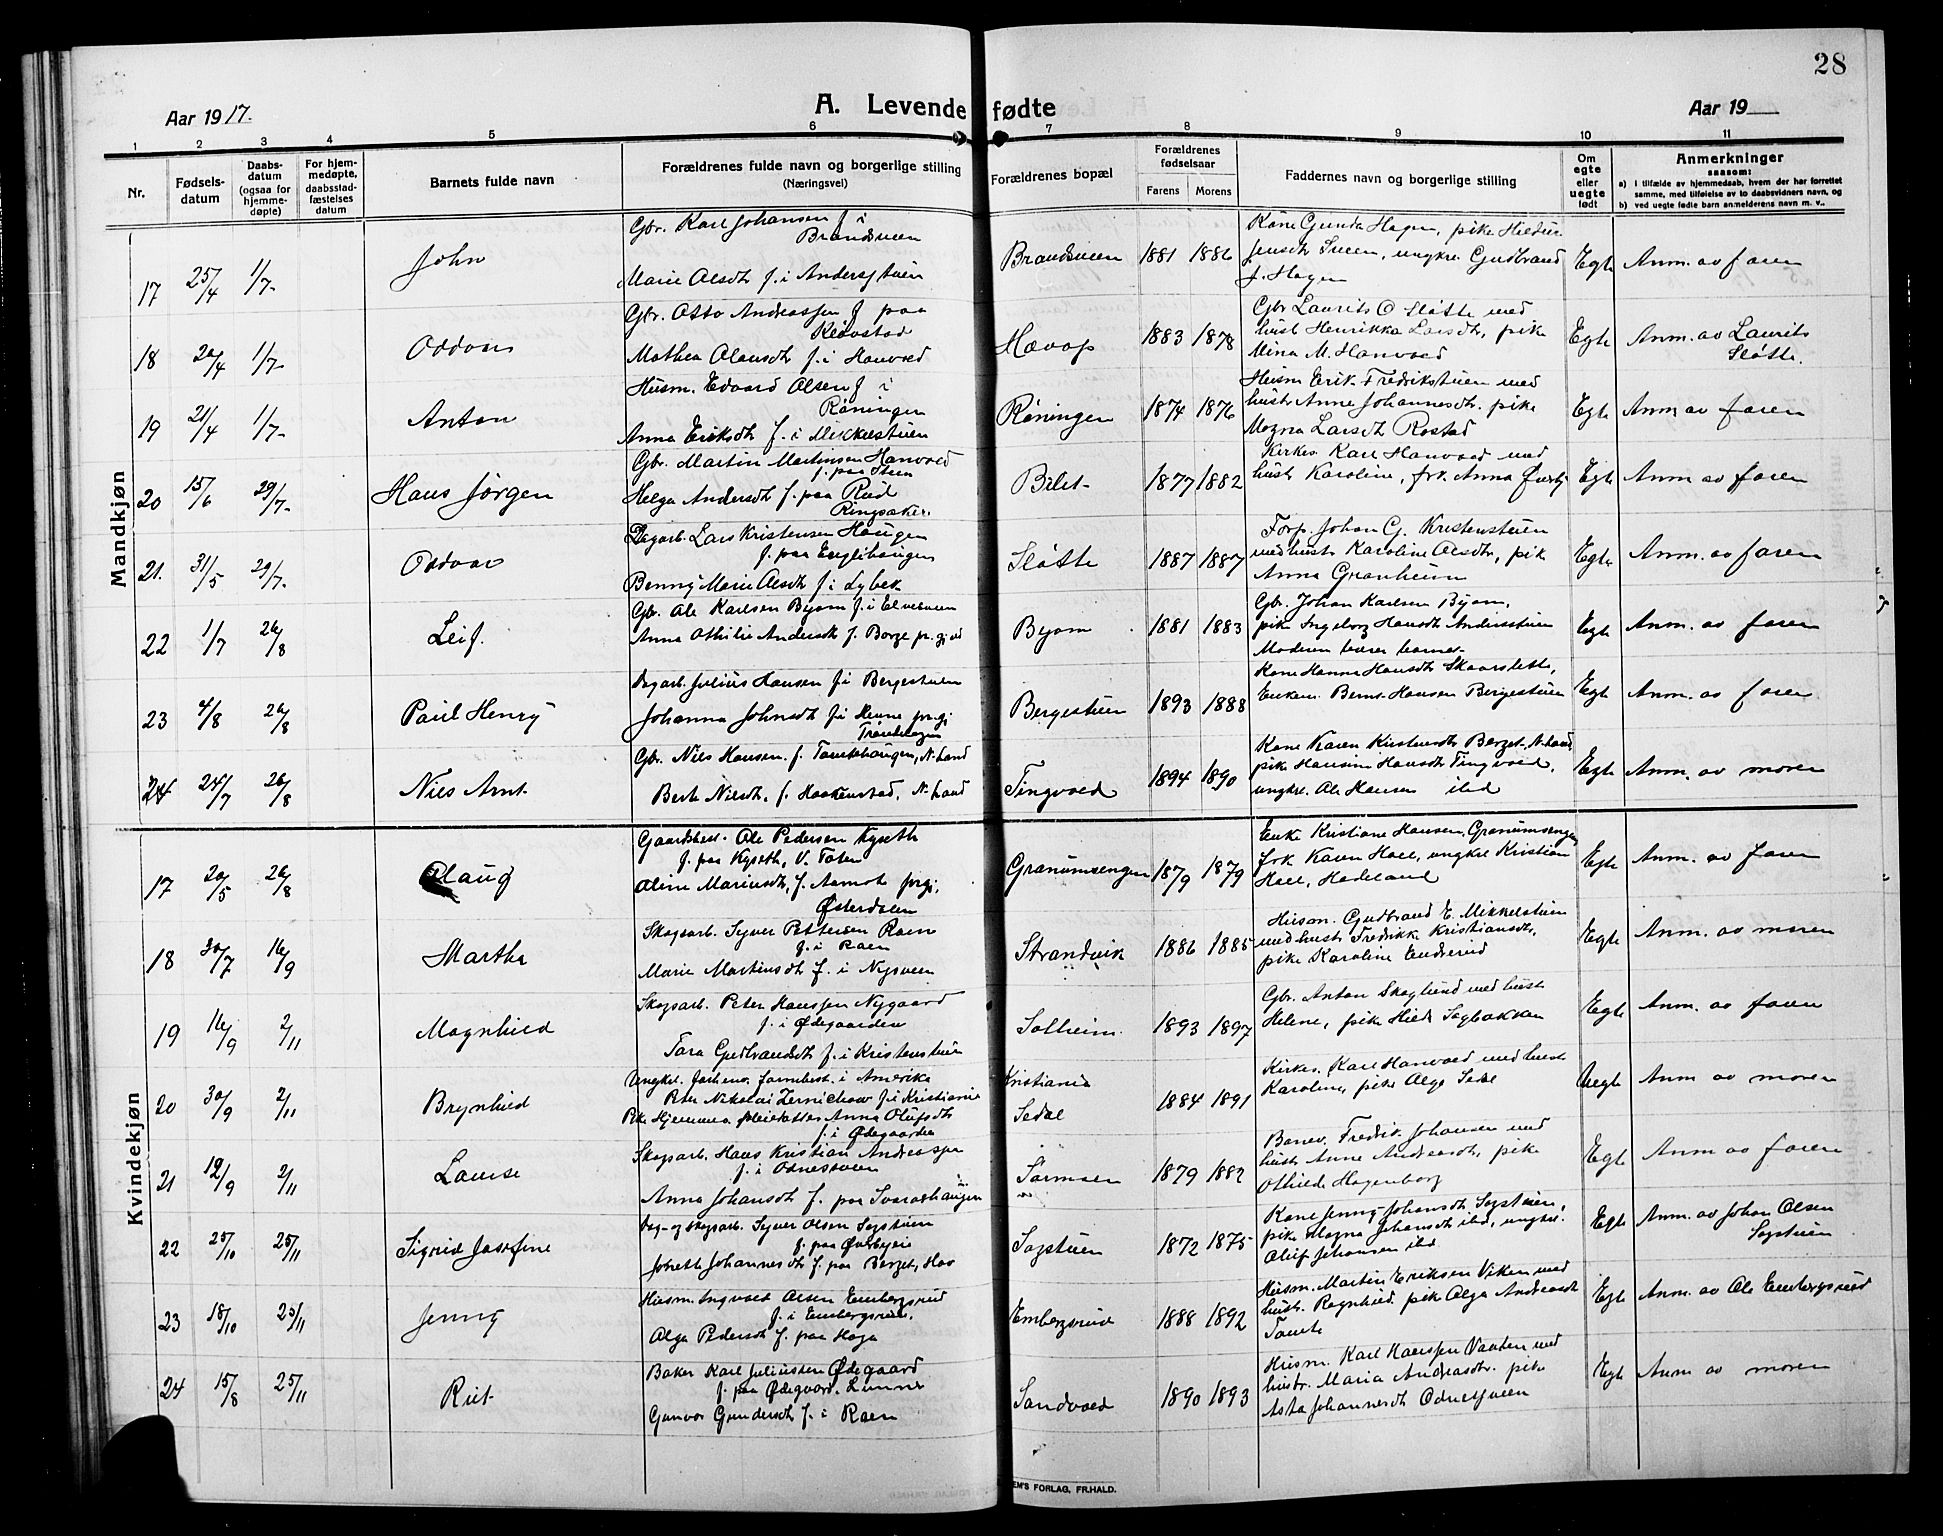 28
Aar 1917.
A. Levende fødte
Aar 19
1 2 3 4 5 6 7 8 9 10 11
Nr.
Fødsels-
datum
Daabs-
datum
(ogsaa for
hjemme-
døpte)
For hjem-
medøpte,
daabsstad-
fæstelses
datum
Barnets fulde navn
Forældrenes fulde navn og borgerlige stilling
(Næringsvei)
Forældrenes bopæl
Forældrenes
fødselsaar
Farens Morens
Faddernes navn og borgerlige stilling
Om
egte
eller
uegte
født
Anmerkninger
saasom:
a) i tilfælde av hjemmedaab, hvem der har forrettet
samme, med tilføielse av to daabsvidners navn, og
b) ved uegte fødte barn anmelderens navn m. v..
Mandkjøn
17 25/4 1/7 John
Gbr. Karl Johansen f i
Brandsveen
Marie Olsdt f. i Anderstuen
Brandsveen 1881 1886
Kone Gunda Hagen, pike
Sveen, ungkr. Gudbrand
J. Hagen
Egte Anm. av faren
18 20/4 1/7 Oddvar
Gbr. Otto Andreassen f paa
Mathea Olausdt f. i Hanvold
1883 1878
Gbr Laurits O Sløtte med
hustr Henrikka Larsdt, pike
Mina M. Hanvold
Egte Anm. av Laurits
Sløtte.
19 21/4 1/7 Anton
Husm. Edvard Olsen f i
Røningen
Anna Eriksdt f. i Mikkelstuen
Røningen 1874 1876
Husm Erik Fredrikstuen med
hustr Anne Johannesdt. pike
Magna Larsdt Rostad
Egte Anm av faren
20 15/6 29/7 Hans Jørgen
Gbr. Martin Martinsen Hanvold
f. paa Steen
Helga Andersdt f. paa Rud
Ringsaker
Bilet 1877 1882
Kirkes. Karl Hanvold med
hustr Karoline, frk. Anna Øverby
Egte Anm av faren
21. 31/5 29/7 Oddvar
Dagarb. Lars Kristensen Haugen
f. paa Englihaugen
Benny Marie Olsdt f. i Lybek
Sløtte 1887 1887
Forp. Johan G. Kristenstuen
med hustr Karoline Olsdt, pik
Anna Granheim
Egte Anm. av faren
22 1/7 26/8 Leif.
Gbr. Ole Karlsen Byom f. i Elvesveen
Anna Othilie Andersdt f. Borge pr. gj.vik
Byom 1881 1883
Gbr. Johan Karlsen Byom,
pike Ingeborg Hansdt Anderstuen
Moderen bærer barnet
Egte Anm. av faren
23 4/8 26/8 Paul Henry
Dagarb. Julius Hansen f i Bergestuen
Johanna Johnsdt f i
Bergestuen 1893 1888
Kone Hanna Hansdt Skaarslette,
Enkem. Bernt Hansen Bergestuen
Egte Anm. av faren
24 24/7 26/8 Nils Arnt
Gbr. Nils Hansen. f. Tomlehaugen, N. Land
Berte Nilsdt, f. Haakenstad, N. Land
Tingvold 1894 1890
Kone Karen Berget, N. Land
pike Hansine Hansdt Tingvold,
ungkr. Ole Hansen ibd
Egte Anm. av moren
Kvindekjøn
17 20/5 26/8 Olaug
Gaardsbest. Ole Pedersen Kyseth
f. paa Kyseth, V. Toten
Oline Mariusdt, f. Aamot prgj.
Østerdalen
Granumsengen 1879 1879
Enke Kristiane Hansen, Granumsengen
frk Karen Hoel, ungkr Kristian
Hoel, Hadeland
Egte Anm. av faren
18 30/7 16/9 Martha
Skogsarb. Syver Pettersen Raen
f. i Raen
Marie Martinsdt f. i Nysveen
Strandvik 1886 1885
Husm. Gudbrand E. Mikkelstuen
med hustr Fredrikke Kristiansdt,
pike Karoline Endrerud
Egte Anm. av moren
19 16/9 2/11 Magnhild
Skogsarb. Peter Hanssen Nygaard
f. i Ødegaarden
Tora Gudbrandsdt f. i Kristenstuen
Solheim 1893 1897
Gbr. Anton Skoglund med hustr
Helene, pike Hilda Sagbakken
Egte Anm. av faren
20 30/9 2/11 Brynhild
Ungkr. i Amerika
Peter Nikolai f. i Kristiania
Pike Hjemmev. Anna Olufsdt
f. i Ødegaarden
Kristiania
Sedal
1884 1891
Kirkes. Karl Hanvold med hustr
Karoline, pike Olga Sedal
Uegte Anm av moren
21 12/9 2/11 Louise
Skogsarb. Hans Kristian Andreassen
f. i Odnessveen
Anna Johansdt f. paa Svarteshaugen
Sørmoen 1879 1882
Banev. Fredrik Johansen med
hustr Anne Andreasdt, pike
Othilde Hagenborg
Egte Anm av faren
22 25/10 25/11 Sigrid Josefine
Dag- og Skogsarb. Syver Olsen Sagstuen
f. paa Øverbyeie
Johannesdt f. paa Berget, Hov
Sagstuen 1872 1875
Kone Jenny Johansdt Sagstuen,
pike Magna Johansdt ibd, ungkr.
Oluf Johansen ibd
Egte Anm. av Johan Olsen
Sagstuen
23 18/10 25/11 Jenny
Husm. Ingvald Olsen Embergsrud
f. i Embergsrud.
Olga Pedersdt f. paa Haga
Embergsrud 1888 1892
Husm. Martin Eriksen Viken med
hustr. Ragnhild. pike Olga Andreasdt
Tomte
Egte Anm. av Ole Embergsrud
24 15/8 25/11 Rut
Baker Karl Juliussen Ødegaard
f. paa Ødegaard. Lunner
Gunvor Gundersdt f. i Raen
Sandvold 1890 1893
Husm. Karl Hanssen Vaaten med
hustr. Maria Andreasdt. pike
Asta Johannesdt Odnessveen
Egte Anm. av moren
EM'S FORLAG, FR.HALD.